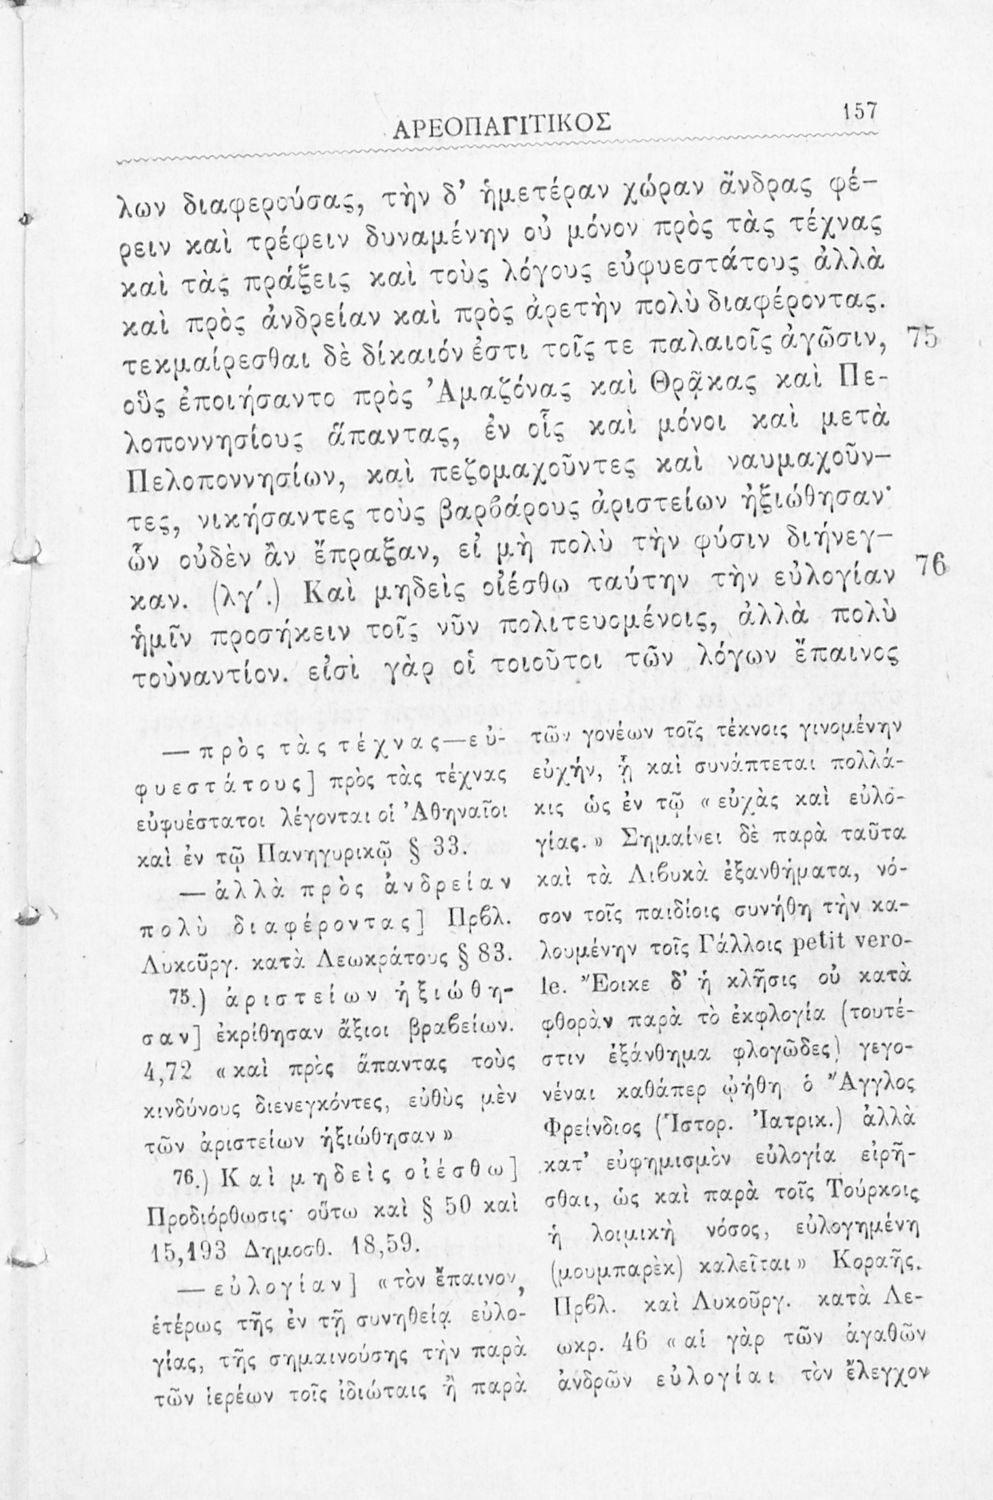 ΑΡΕΟΠΑΓΙΤΙΚΟΣ 157
λων διαφερούσας, τὴν δ’ ἡμετέραν χώραν ἄνδρας φέ-
ρειν καὶ τρέφειν δυναμένην οὐ μόνον πρὸς τὰς τέχνας
καὶ τὰς πράξεις καὶ τοὺς λόγους εὐφυεστάτους ἀλλὰ
καὶ πρὸς ἀνδρείαν καὶ πρὸς ἀρετὴν πολὺ διαφέροντας.
τεκμαίρεσθαι δὲ δίκαιόν ἐστι τοῖς τε παλαιοῖς ἀγῶσιν, 75
οὓς ἐποιήσαντο πρὸς Ἀμαζόνας καὶ Θρᾷκας καὶ Πε-
λοποννησίους ἅπαντας, ἐν οἷς καὶ μόνοι καὶ μετὰ
Πελοποννησίων, καὶ πεζομαχοῦντες καὶ ναυμαχοῦν-
τες, νικήσαντες τοὺς βαρβάρους ἀριστείων ἠξιώθησαν·
ὧν οὐδὲν ἂν ἔπραξαν, εἰ μὴ πολὺ τὴν φύσιν διήνεγ-
καν. (λγ΄.) Καὶ μηδεὶς οἰέσθω ταύτην τὴν εὐλογίαν 76
ἡμῖν προσήκειν τοῖς νῦν πολιτευομένοις, ἀλλὰ πολὺ
τοὐναντίον. εἰσὶ γὰρ οἱ τοιοῦτοι τῶν λόγων ἔπαινος
— πρὸς τὰς τέχνας—εὐ-
φυεστάτους] πρὸς τὰς τέχνας
εὐφυέστατοι λέγονται οἱ Ἀθηναῖοι
καὶ ἐν τῷ Πανηγυρικῷ § 33.
— ἀλλὰ πρὸς ἀνδρείαν
πολὺ διαφέροντας] Πρβλ.
Λυκοῦργ. κατὰ Λεωκράτους § 83.
75.) ἀριστείων ἠξιώθη-
σαν] ἐκρίθησαν ἄξιοι βραβείων.
4,72 «καὶ πρὸς ἅπαντας τοὺς
κινδύνους διενεγκόντες, εὐθὺς μὲν
τῶν ἀριστείων ἠξιώθησαν»
76.) Καὶ μηδεὶς οἰέσθω]
Προδιόρθωσις· οὕτω καὶ § 50 καὶ
15,193 Δημοσθ. 18,59.
— εὐλογίαν] «τὸν ἔπαινον,
ἑτέρως τῆς ἐν τῇ συνηθείᾳ εὐλο-
γίας, τῆς σημαινούσης τὴν παρὰ
τῶν ἱερέων τοῖς ἰδιώταις ἢ παρὰ
τῶν γονέων τοῖς τέκνοις γινομένην
εὐχήν, ᾗ καὶ συνάπτεται πολλά-
κις ὡς ἐν τῷ «εὐχὰς καὶ εὐλο-
γίας.» Σημαίνει δὲ παρὰ ταῦτα
καὶ τὰ Λιβυκὰ ἐξανθήματα, νό-
σον τοῖς παιδίοις συνήθη τὴν κα-
λουμένην τοῖς Γάλλοις petit vero-
le. Ἔοικε δ’ ἡ κλῆσις οὐ κατὰ
φθορὰν παρὰ τὸ ἐκφλογία (τουτέ-
στιν ἐξάνθημα φλογῶδες) γεγο-
νέναι καθάπερ ᾠήθη ὁ Ἄγγλος
Φρείνδιος (Ἱστορ. Ἰατρικ.) ἀλλὰ
κατ’ εὐφημισμὸν εὐλογία εἰρῆ-
σθαι, ὡς καὶ παρὰ τοῖς Τούρκοις
ἡ λοιμικὴ νόσος, εὐλογημένη
(μουμπαρὲκ) καλεῖται» Κοραῆς.
Πρβλ. καὶ Λυκοῦργ. κατὰ Λε-
ωκρ. 46 «αἱ γὰρ τῶν ἀγαθῶν
ἀνδρῶν εὐλογίαι τὸν ἔλεγχον